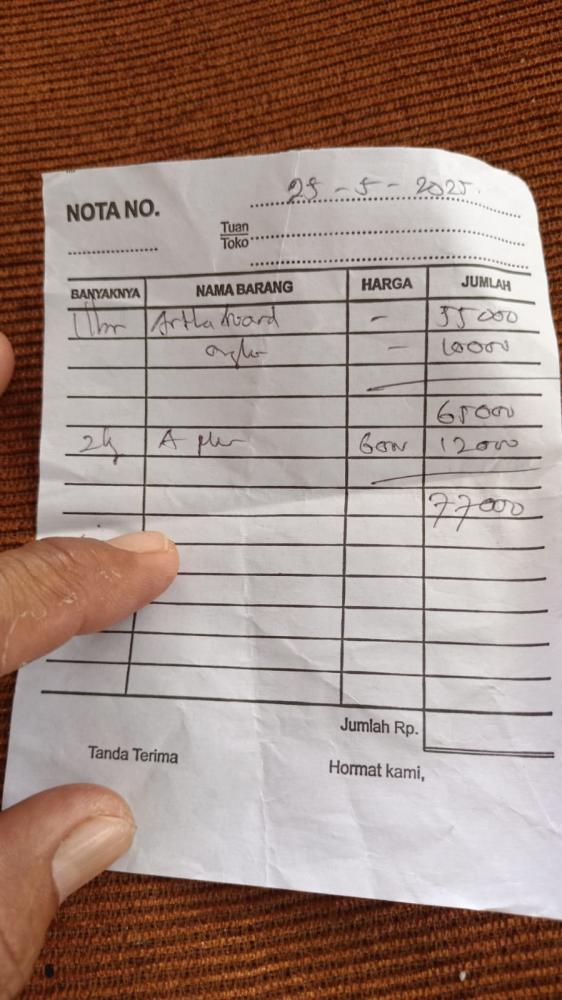 25 - 5 - 2025.
NOTA NO.
Tuan
Toko
BANYAKNYA NAMA BARANG HARGA JUMLAH
1 lbr Artha board - 55000
ongkr - 10000
65000
2 kg A plus 6000 12000
77000
Jumlah Rp.
Tanda Terima Hormat kami,